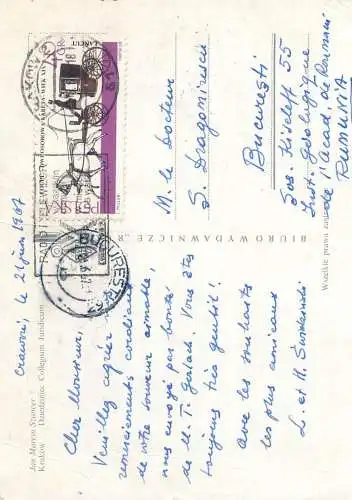 Jan Marcin Szancer
Kraków Dziedziniec Collegium Juridicum
Cracovie, le 21 juin 1967
Cher Monsieur,
Veuillez agréer
remerciements cordiaux
de votre souvenir aimable,
nous envoyé par bonté
de M. Ti. Galach. Vous êtes
toujours très gentil!
Avec les souhaits
les plus amicaux
L. et H. Świderski
BIURO WYDAWNICZE „R
Wszelkie prawa
ŁAŃCUT
POLSKA
BUCUREȘTI
M. le Docteur
S. Dragomirescu
București
Șos. Kiseleff 55
Inst. Géologique
de l'Acad. de Roumanie
Rumunia